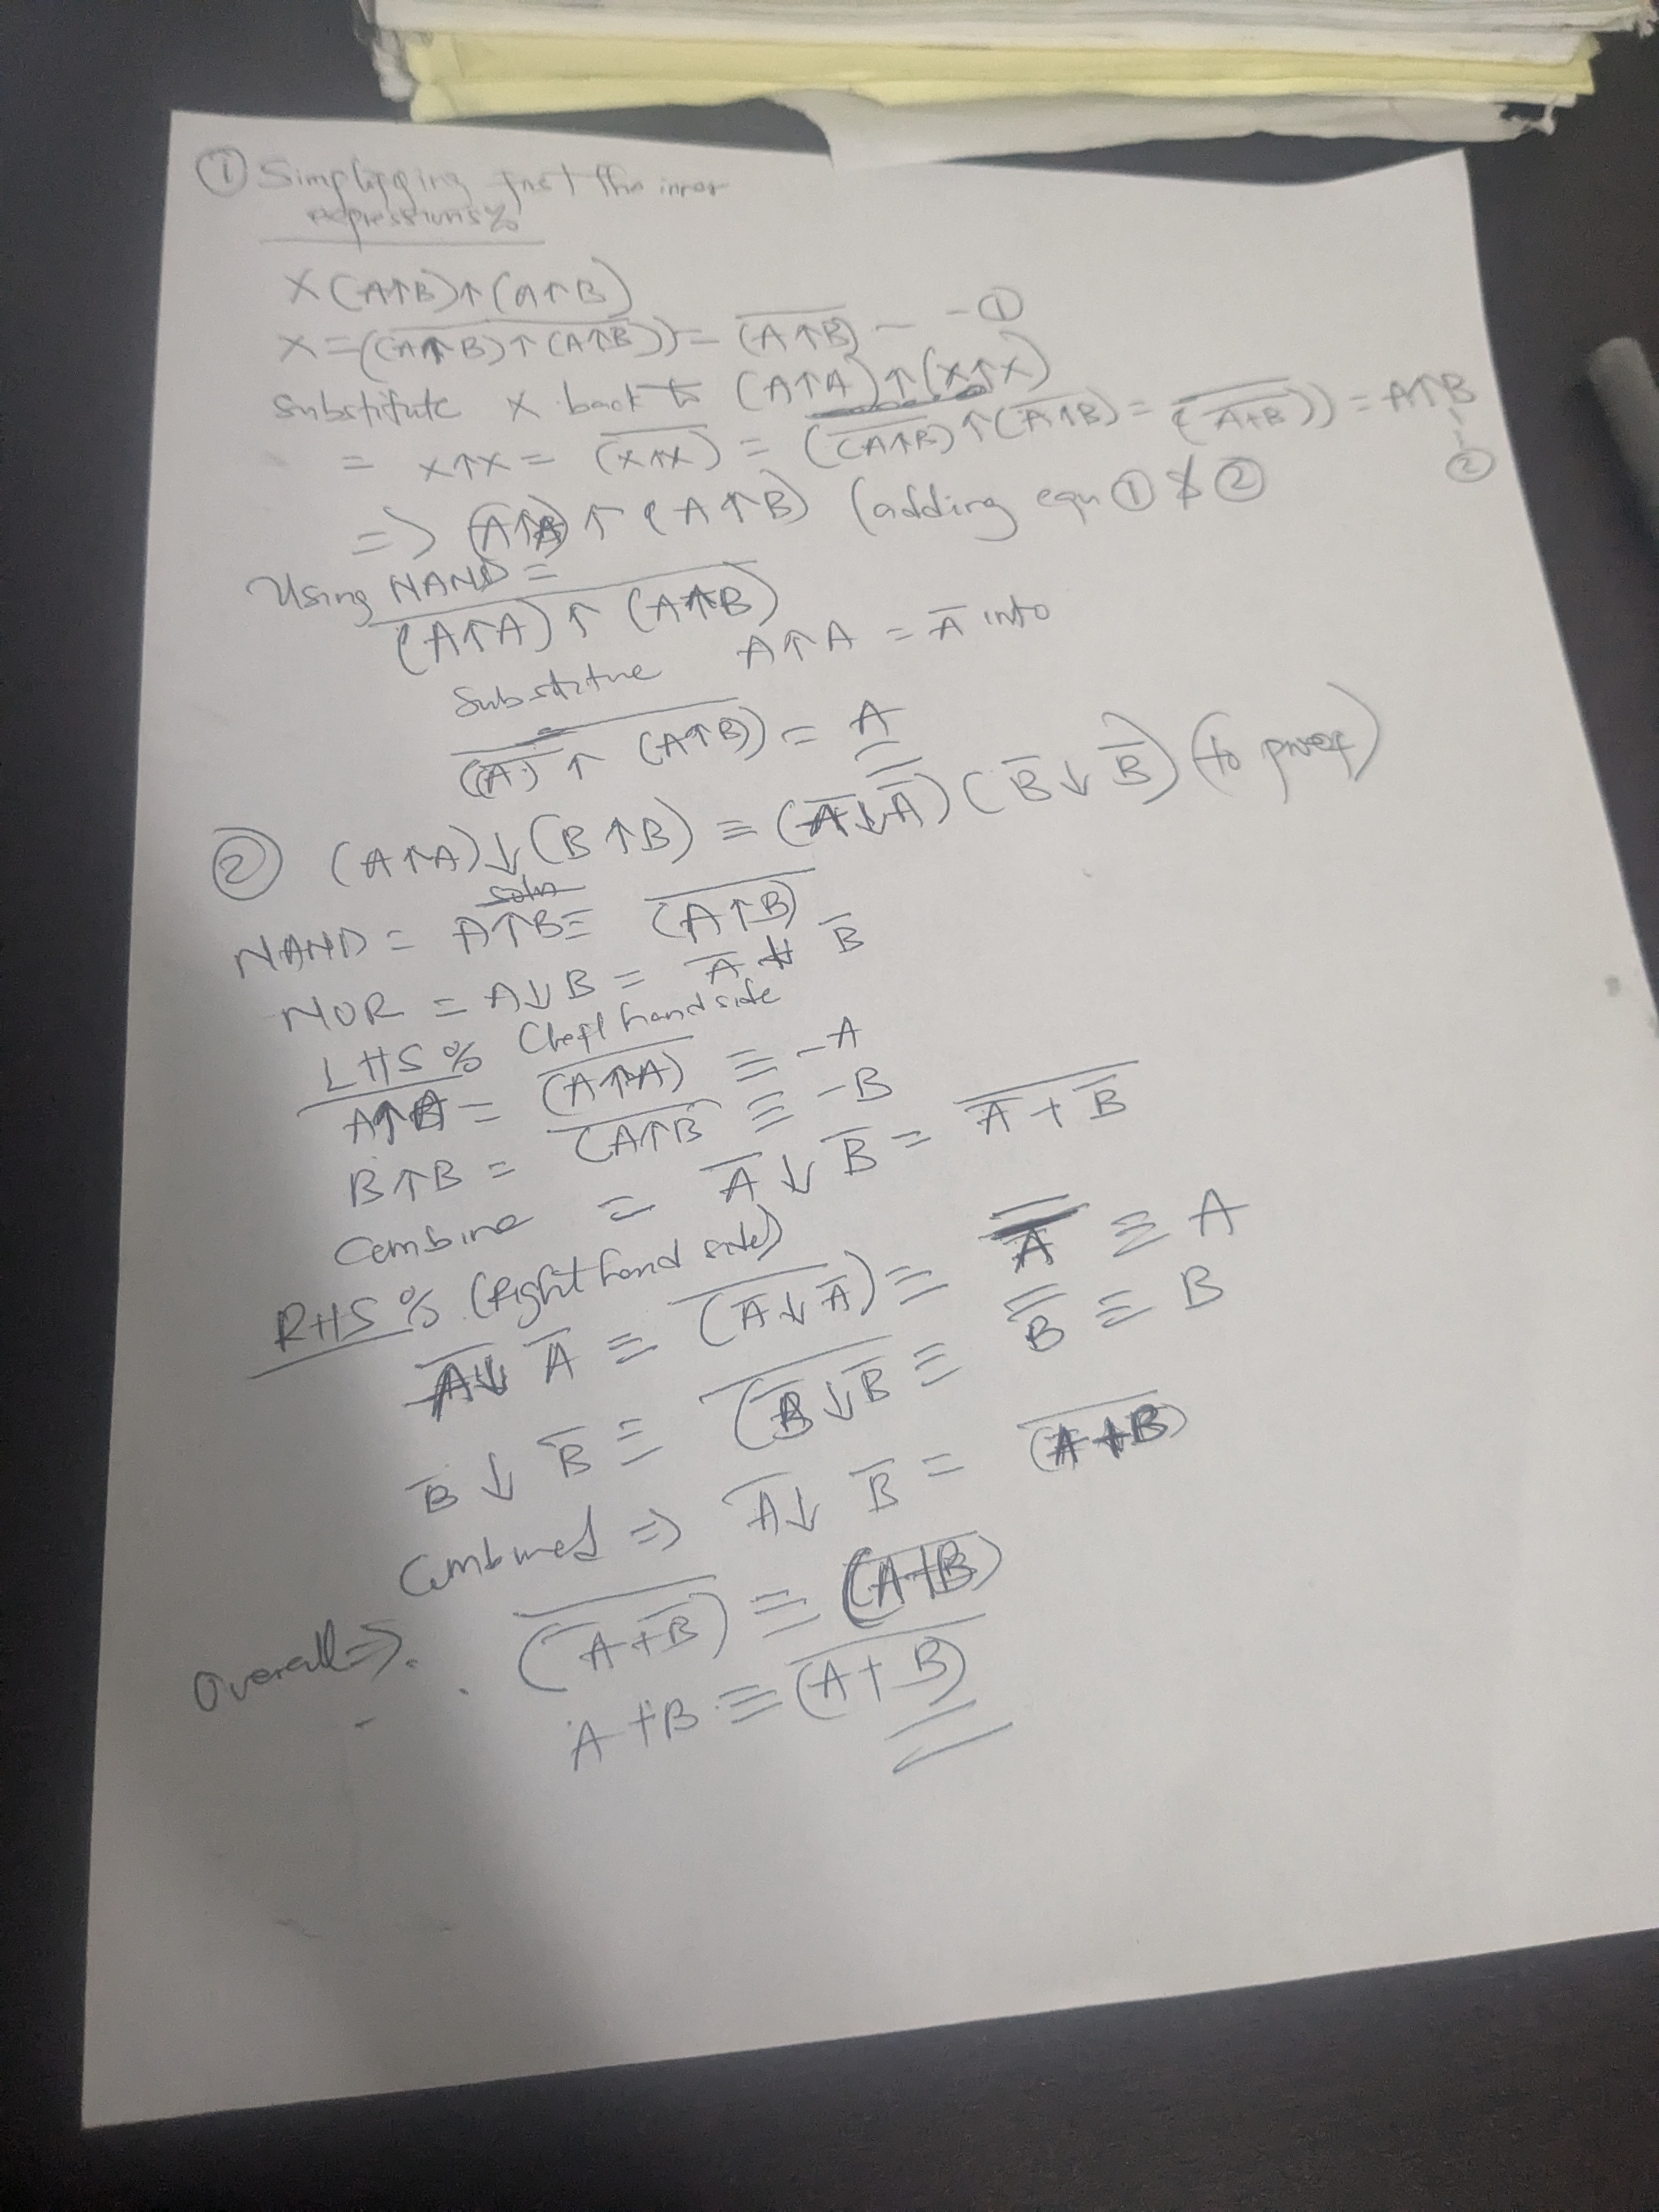 ① Simplifying first the inner
expressions:
X (A↑B)↑(A↑B)
X = ((A↑B)↑(A↑B)) = (A̅↑̅B̅) - - ①
Substitute X back to (A↑A)↑(X↑X)
= X↑X = (X↑X) = ((A↑B)↑(A↑B) = (A+B)) = A↑B
②
=> (A↑A)↑(A↑B) (adding eqn ① & ②
Using NAND =
(A↑A)↑(A↑B)
Substitue A↑A = A̅ into
(A)↑(A↑B)) = A
② (A↑A)↓(B↑B) ≡ (A̅↓A̅)(B̅↓B̅) (to prove)
soln
NAND = A↑B ≡ (A̅↑̅B̅)
NOR = A↓B = A̅ B̅
LHS: (left hand side
A↑A = (A̅↑̅A̅) ≡ -A
B↑B = (A̅↑̅B̅ ≡ -B
Combine = A̅↓B̅ = A̅+B̅
RHS: (Right hand side)
A̅↓A̅ ≡ (A̅↓A̅) = A̿ ≡ A
B̅↓B̅ ≡ (B̅↓B̅ ≡ B̿ ≡ B
Combined => A̅↓B̅ = (A̅+̅B̅)
Overall => (A̅+B̅) ≡ (A+B)
A+B ≡ (A̅+̅B̅)